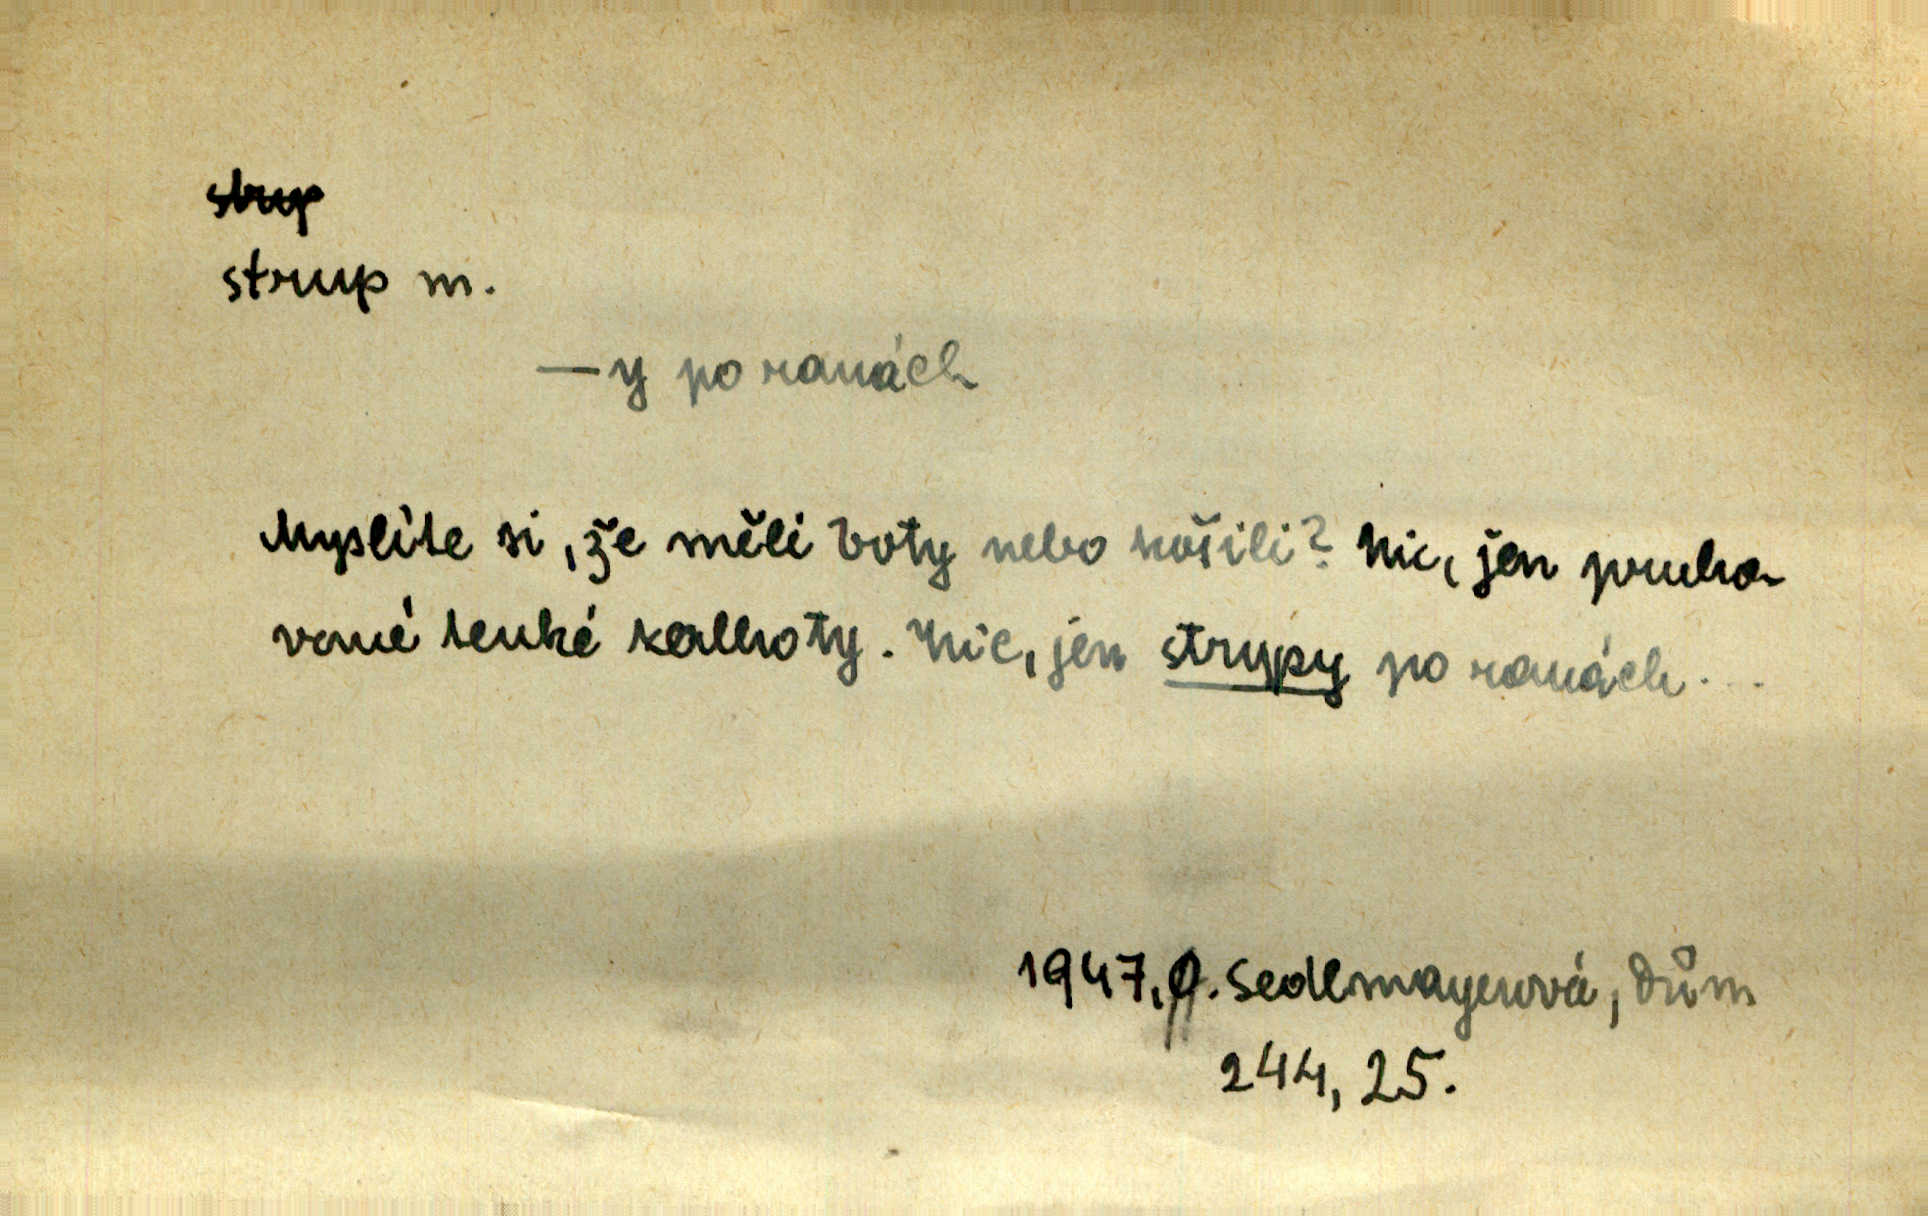 strup m.
—y po ranách
Myslíte si, že měli boty nebo košili? Nic, jen pruho-
vané tenké kalhoty. Nic, jen strypy po ranách...
1947, O. Sedlmayerová, Dům
244, 25.